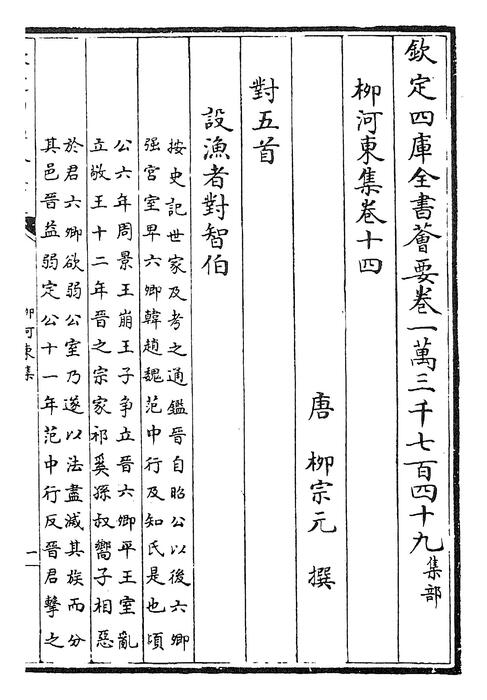 欽定四庫全書薈要卷一萬三千七百四十九集部
柳河東集卷十四
唐　柳宗元　撰
對五首
設漁者對智伯
按史記世家及考之通鑑晉自昭公以後六卿
强官室卑六卿韓趙魏范中行及知氏是也頃
公六年周景王崩王子争立晉六卿平王室亂
立敬王十二年晉之宗家祁奚孫叔嚮子相惡
於君六卿欲弱公室乃遂以法盡滅其族而分
其邑晉益弱定公十一年范中行反晉君擊之
柳河東集
一